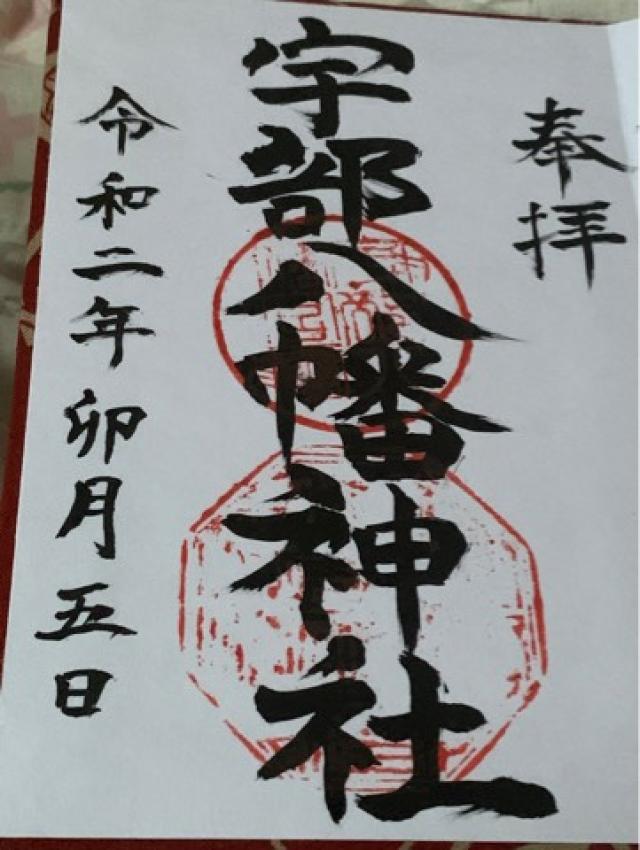 奉拝
宇部八幡神社
令和二年卯月五日